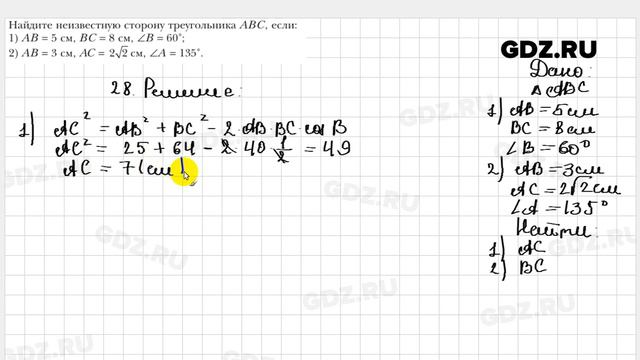 Найдите неизвестную сторону треугольника ABC, если:
1) AB = 5 см, BC = 8 см, ∠B = 60°;
2) AB = 3 см, AC = 2√2 см, ∠A = 135°.
GDZ.RU
28. Решение:
1) AC² = AB² + BC² - 2·AB·BC·cos B
AC² = 25 + 64 - 2·40·1/2 = 49
AC = 7 (см)
Дано:
△ ABC
1) AB = 5 см
BC = 8 см
∠B = 60°
2) AB = 3 см
AC = 2√2 см
∠A = 135°
Найти:
1) AC
2) BC
GDZ.RU
GDZ.RU
GDZ.RU
GDZ.RU
GDZ.RU